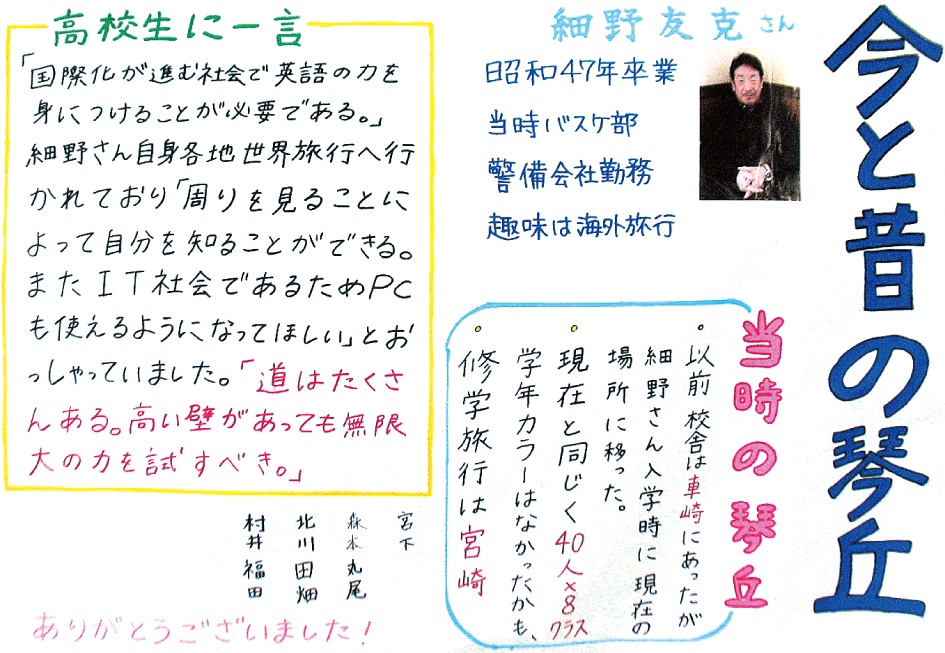 今と昔の琴丘
細野友克さん
昭和47年卒業
当時バスケ部
警備会社勤務
趣味は海外旅行
当時の琴丘
。以前校舎は車崎にあったが
細野さん入学時に現在の
場所に移った。
。現在と同じく40人×8クラス
学年カラーはなかったかも、
。修学旅行は宮崎
高校生に一言
「国際化が進む社会で英語の力を
身につけることが必要である。」
細野さん自身各地世界旅行へ行
かれており「周りを見ることに
よって自分を知ることができる。
またIT社会であるためPC
も使えるようになってほしい」とお
っしゃっていました。「道はたくさ
んある。高い壁があっても無限
大の力を試すべき。」
宮下
森本丸尾
北川田畑
村井福田
ありがとうございました!